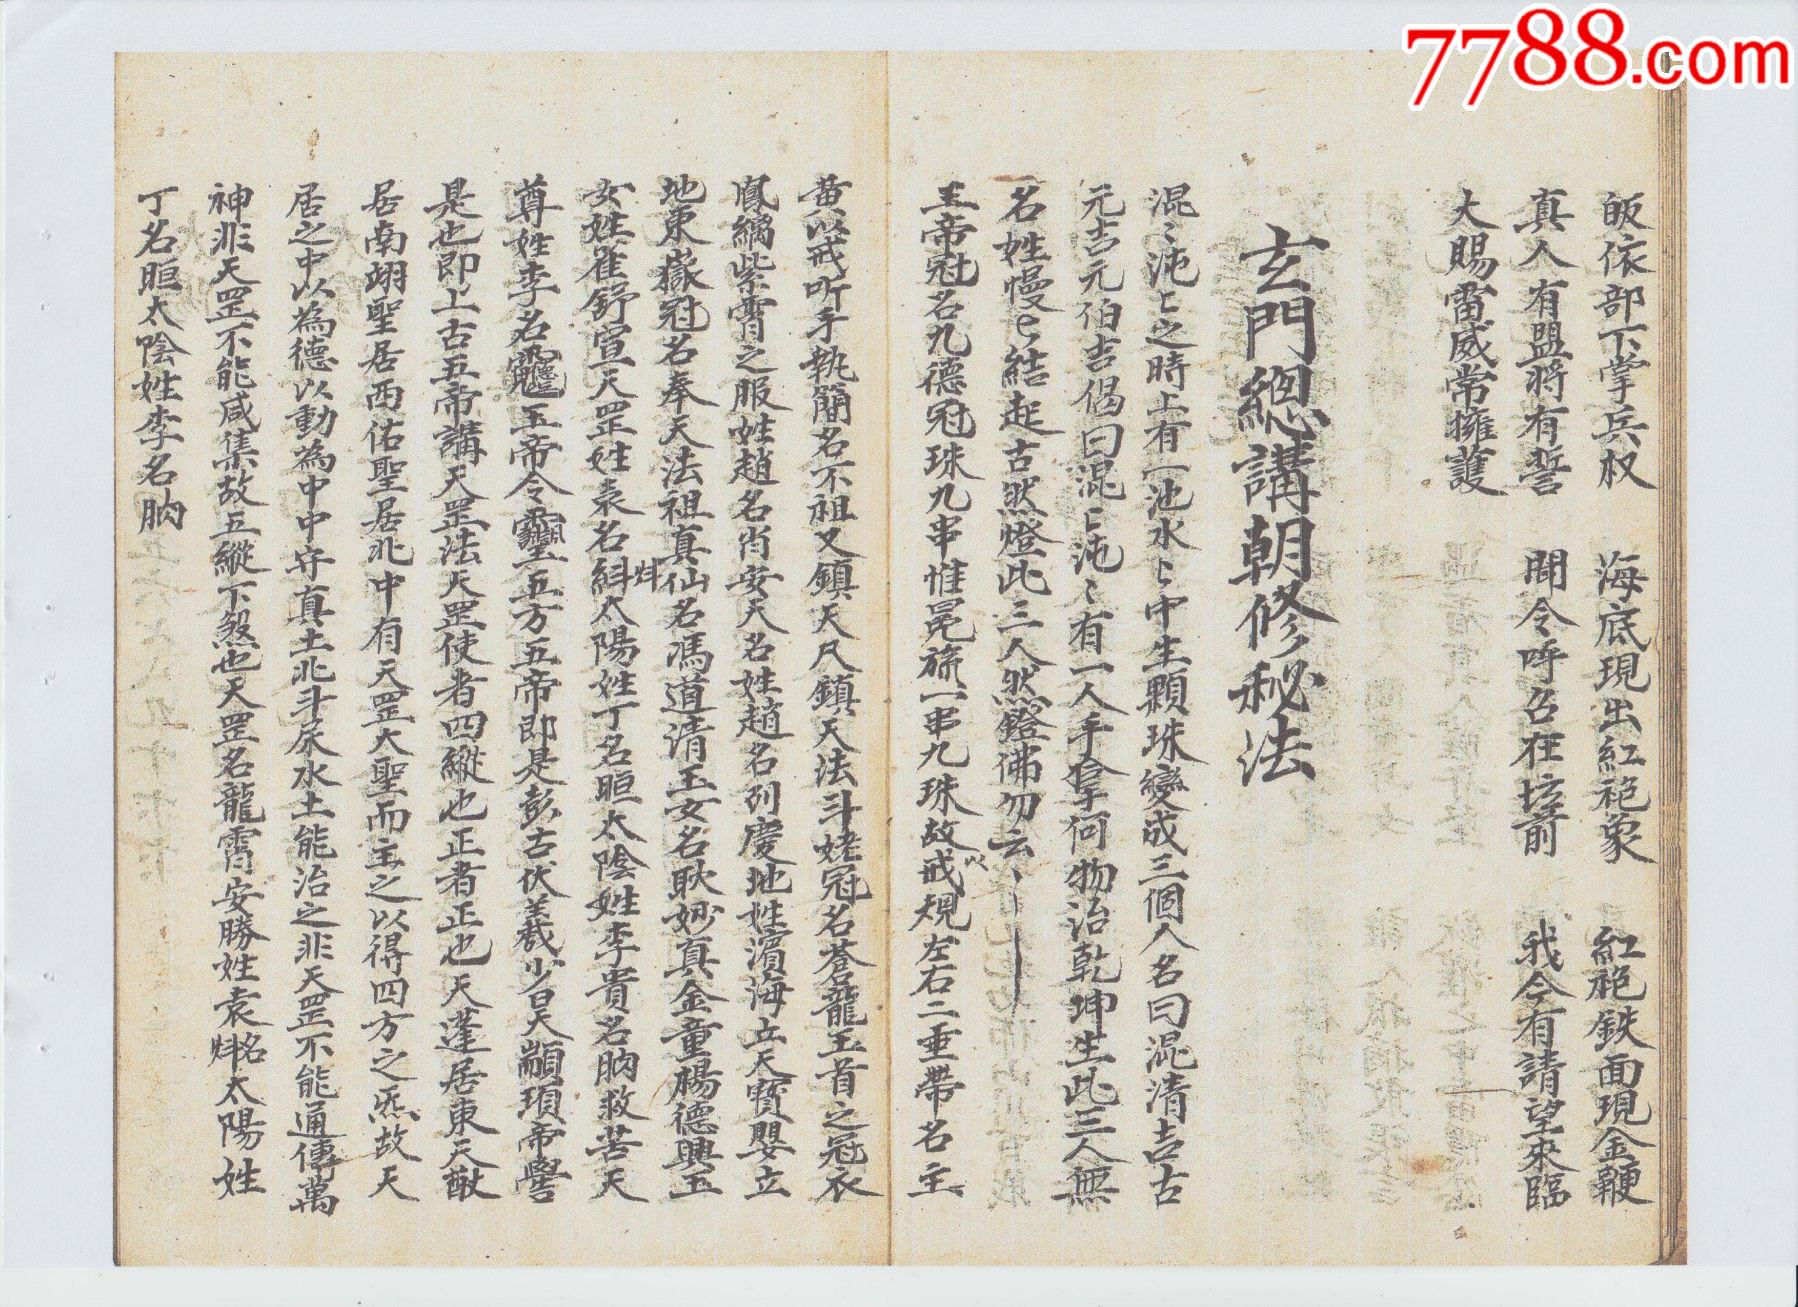 7788.com
皈依部下掌兵权 海底現出紅袍象 紅袍鉄面現金鞭
真人有盟將有誓 聞令呼召在坛前 我今有請望來臨
大賜雷威常擁護
玄門總講朝修秘法
混〻沌〻之時上有一池水〻中生顆珠變成三個人名曰混清吉古
元吉元伯吉偈曰混〻沌〻有一人手拿何物治乾坤生此三人無
名姓慢〻結起古然燈此三人然鐙佛勿云
玉帝冠名九德冠珠九串惟冕旒一串九珠故戒以規左右二垂帶名主
黄以戒听手執簡名不祖又鎮天尺鎮天法斗姥冠名蒼龍玉首之冠衣
鳳繡紫霄之服姓趙名肖安天名姓趙名列慶地姓濱海立天寳嬰立
地東嶽冠名奉天法祖真仙名馮道清玉女名耿妙真金童楊德興玉
女姓崔舒宣天罡姓袁名紏炓太陽姓丁名晅太陰姓李貴名朒救苦天
尊姓李名玉帝令五方五帝即是彭古伏羲少昊天顓頊帝嚳
是也即上古五帝講天罡法天罡使者四縱也正者正也天蓬居東天猷
居南翊聖居西佑聖居北中有天罡大聖而主之以得四方之炁故天
居之中以為德以動為中中守真土北斗屎水土能治之非天罡不能通傳萬
神非天罡不能咸集故五縱下煞也天罡名龍霄安勝姓袁名炓太陽姓
丁名晅太陰姓李名朒